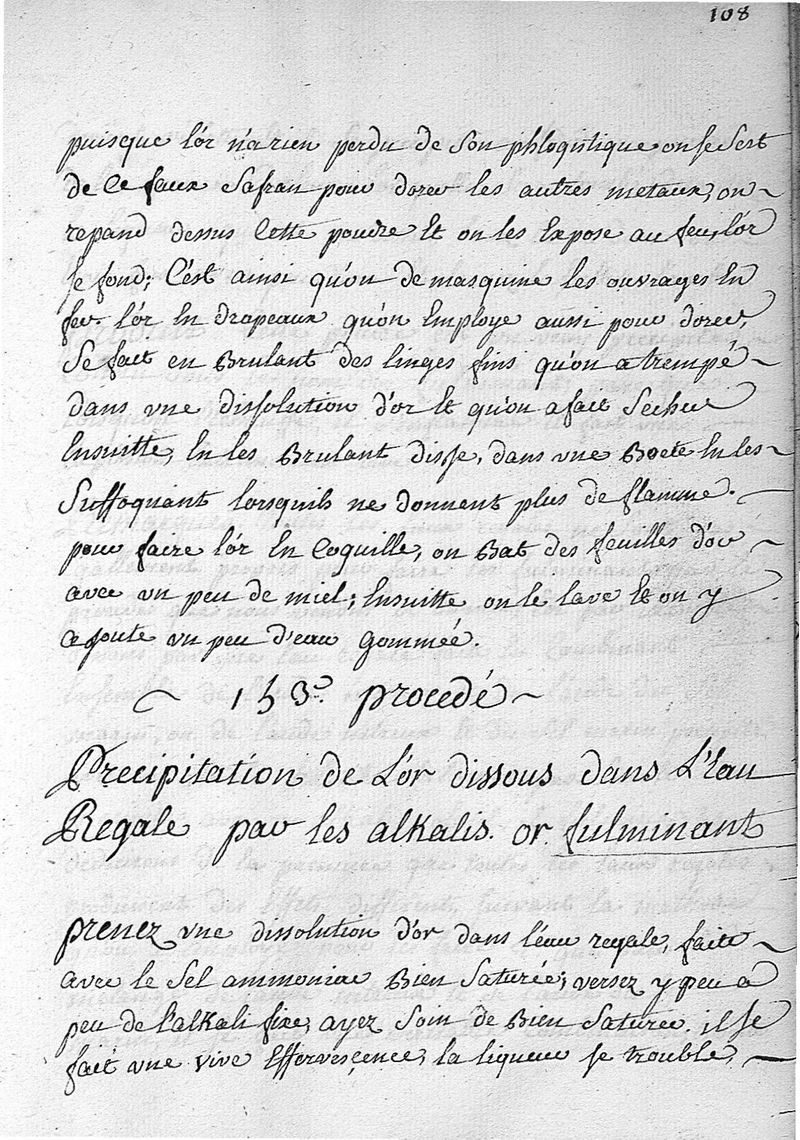 108
puisque l'or n'a rien perdu de son phlogistique on se sert
de Ce faux Safran pour dorer les autres metaux, on
repand dessus Cette poudre Et on les Expose au feu, l'or
se fond; C'est ainsi qu'on damasquine les ouvrages En
fer. l'or En drapeaux qu'on Employe aussi pour dorer,
Se fait en Brulant des linges fins qu'on a trempé
dans une dissolution d'or Et qu'on a fait Secher
Ensuitte, En les Brulant disje, dans une Boete En les
Suffoquant lorsquils ne donnent plus de flamme.
pour faire l'or En Coquille, on Bat des feuilles d'or
avec un peu de miel; Ensuitte on le lave Et on y
ajoute un peu d'eau gommée.
153e. procedé
Precipitation de L'or dissous dans L'Eau
Regale par les alkalis. or fulminant
prenez une dissolution d'or dans l'eau regale, faite
avec le Sel ammoniac Bien Saturée; versez y peu a
peu de l'alkali fixe, ayez Soin de Bien Saturer. il se
fait une vive Effervescence, la liqueur se trouble,